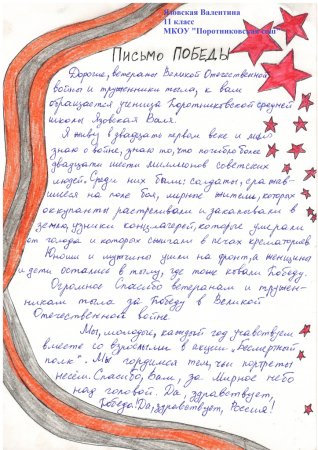 Язовская Валентина
11 класс
МКОУ "Поротниковская сош"
ПИСЬМО ПОБЕДЫ
Дорогие, ветераны Великой Отечественной
войны и труженники тыла, к вам
обращается ученица Поротниковской средней
школы Язовская Валя.
Я живу в двадцать первом веке и мало
знаю о войне, знаю то, что погибло более
двадцати шести миллионов советских
людей. Среди них были: солдаты, сражав-
шиеся на поле боя, мирные жители, которых
оккупанты расстреливали и закапывали в
землю, узники концлагерей, которые умирали
от голода и которых сжигали в печах крематориев.
Юноши и мужчины ушли на фронт, а женщины
и дети остались в тылу, где тоже ковали Победу.
Огромное Спасибо ветеранам и тружен-
никам тыла за Победу в Великой
Отечественной войне.
Мы, молодёж, каждый год участвуем
вместе со взрослыми в акции „Бессмертный
полк". Мы гордимся тем, чьи портреты
несём. Спасибо, Вам, за Мирное небо
над головой. Да, здравствует,
Победа! Да, здравствует, Россия!